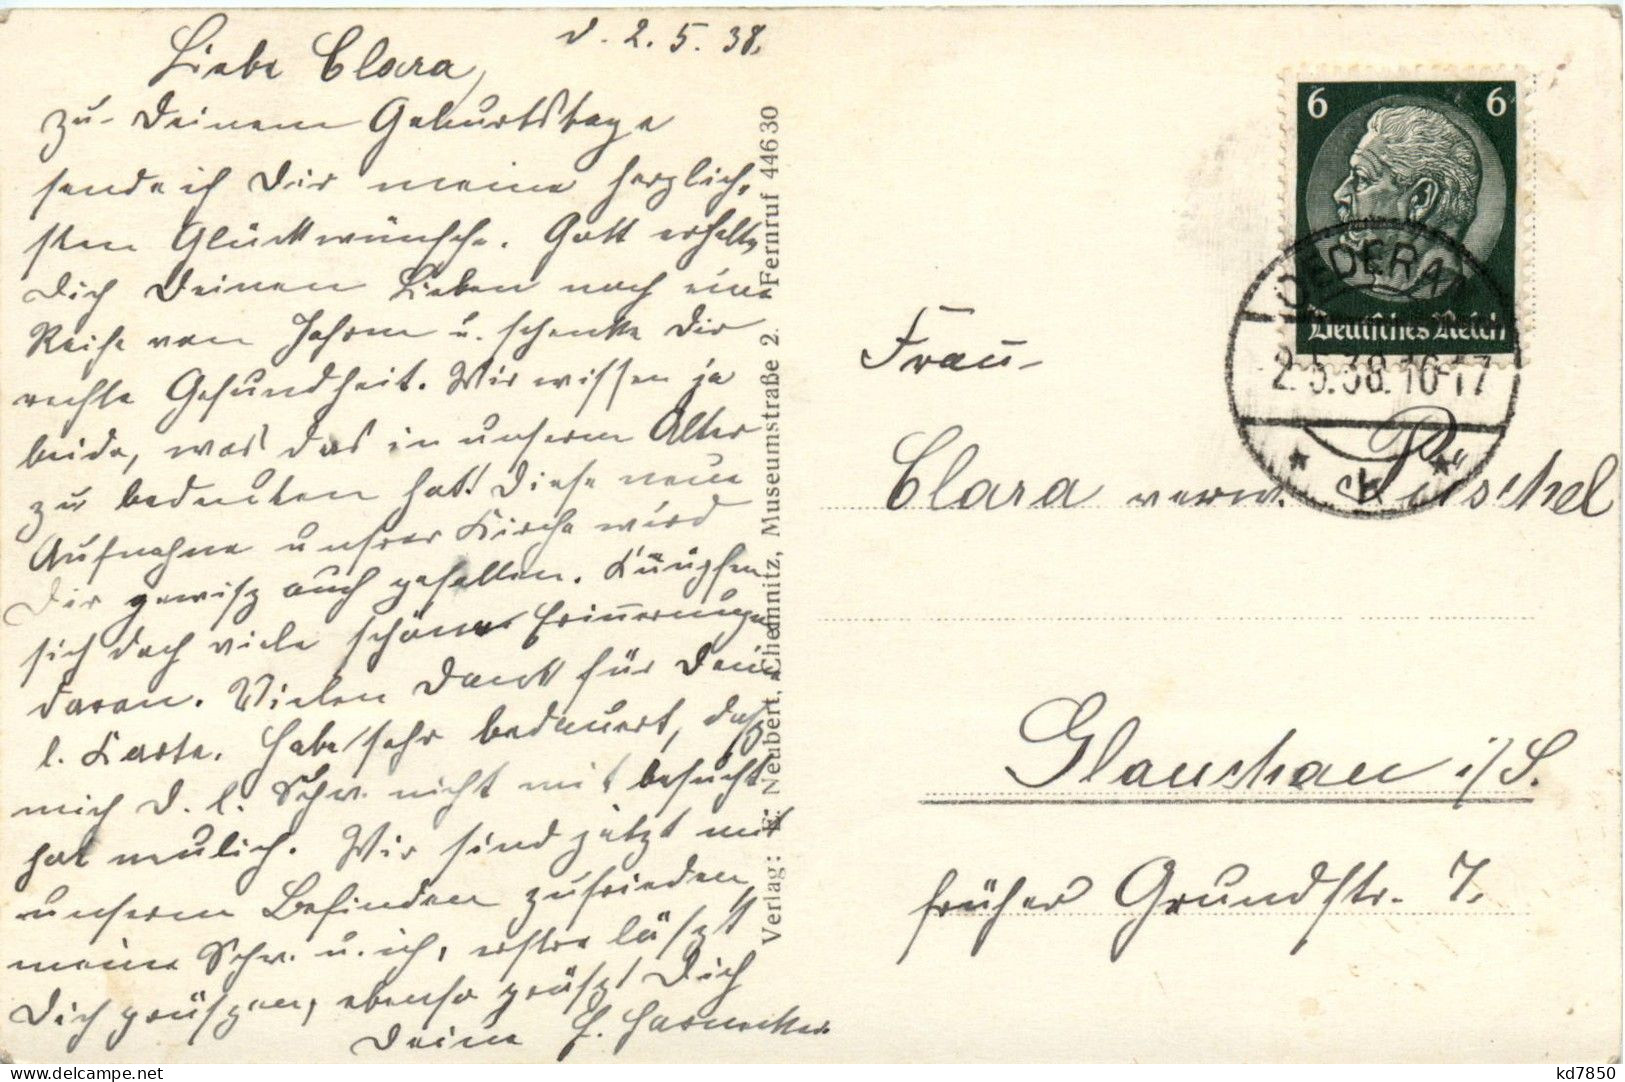 d. 2. 5. 38.
Liebe Clara,
zu Deinem Geburtstage
sende ich Dir meine herzlich-
sten Glückwünsche. Gott erhalte
Dich Deinen Lieben noch eine
Reihe von Jahren u. schenke Dir
rechte Gesundheit. Wir wissen ja
beide, was das in unserm Alter
zu bedeuten hat! Diese neue
Aufnahme unsrer Kirche wird
Dir gewiß auch gefallen. Knüpfen
sich doch viele schöne Erinnerungen
daran. Vielen Dank für Deine
l. Karte. Habe sehr bedauert, daß
mich d. l. Schw. nicht mit besucht
hat neulich. Wir sind jetzt mit
unserm Befinden zufrieden,
meine Schw. u. ich, erstre läßt
Dich grüßen, ebenso grüßt Dich
Deine
Verlag: E. Neubert, Chemnitz, Museumstraße 2. Fernruf 446 30
6 6
Deutsches Reich
OEDERAN
2.5.38.16-17
Frau
Clara verw. Püschel
Glauchau i/S.
früher Grundstr. 7.
kd7850